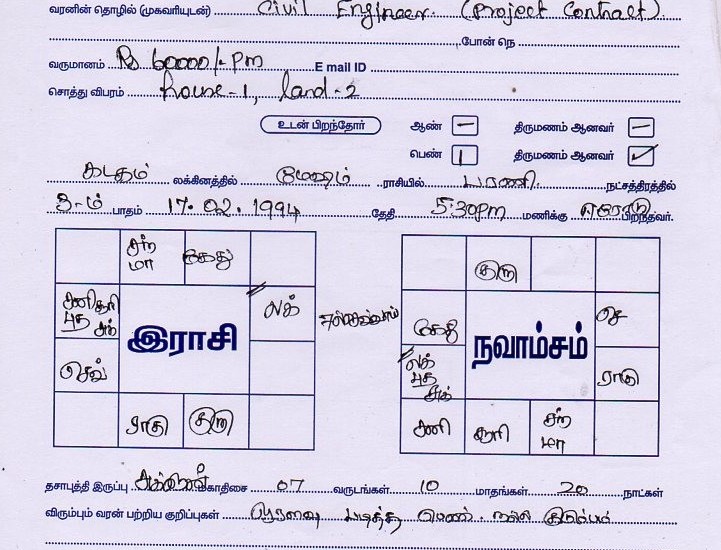 வரனின் தொழில் (முகவரியுடன்) Civil Engineer. (Project Contract).
போன் நெ
வருமானம் Rs 60000/-pm E mail ID
சொத்து விபரம் house-1, land-2
உடன் பிறந்தோர் ஆண் – திருமணம் ஆனவர் –
பெண் 1 திருமணம் ஆனவர் ✓
கடகம் லக்கினத்தில் மேஷம் ராசியில் பரணி. நட்சத்திரத்தில்
3-ம் பாதம் 17.02.1994 தேதி 5:30pm மணிக்கு ஈரோடு பிறந்தவர்.
சந் மா கேது
சனி சூரி புத சுக் லக்
இராசி
செவ்
ராகு குரு
குரு
கேது செ
நவாம்சம்
லக் புத சுக் ராகு
சனி சூரி சந் மா
தசாபுத்தி இருப்பு சுக்கிரன் மகாதிசை 07 வருடங்கள் 10 மாதங்கள் 20 நாட்கள்
விரும்பும் வரன் பற்றிய குறிப்புகள் படித்த பெண். நல்ல குடும்பம்